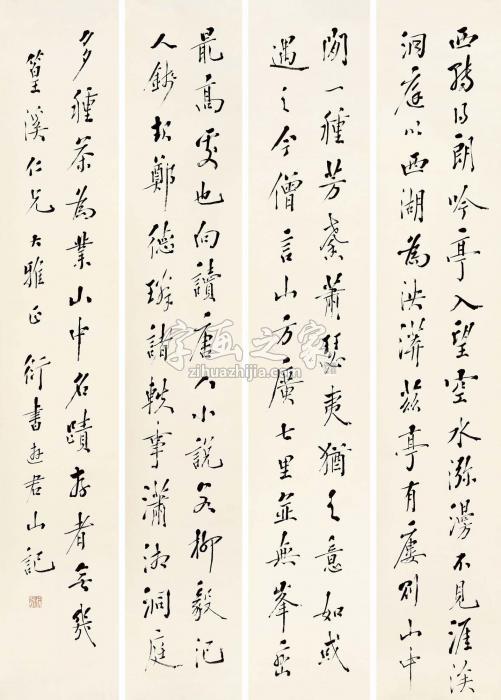 西轉得朗吟亭入望空水瀰漫不見涯涘
洞庭以西湖為泱漭茲亭有廔則山中
聞一種芳馨蕭瑟夷猶之意如或
遇之今僧言山方廣七里並無峯巒
最高處也向讀唐人小說若柳毅记
人錢起鄭德璘諸軼事瀟湘洞庭
多種茶為業山中名蹟存者無幾
篁溪仁兄大雅正 衍書遊君山記
字画之家
zihuazhijia.com